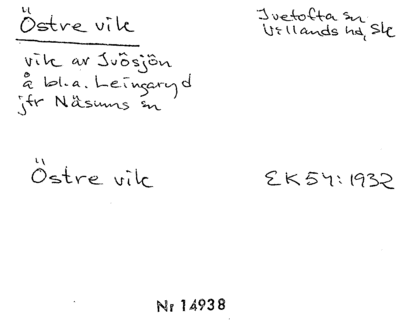 Östre vik
Ivetofta sn
Villands hd, Sk
vik av Ivösjön
å bl.a. Leingaryd
jfr Näsums sn
Östre vik
EK 54: 1932
Nr 14938